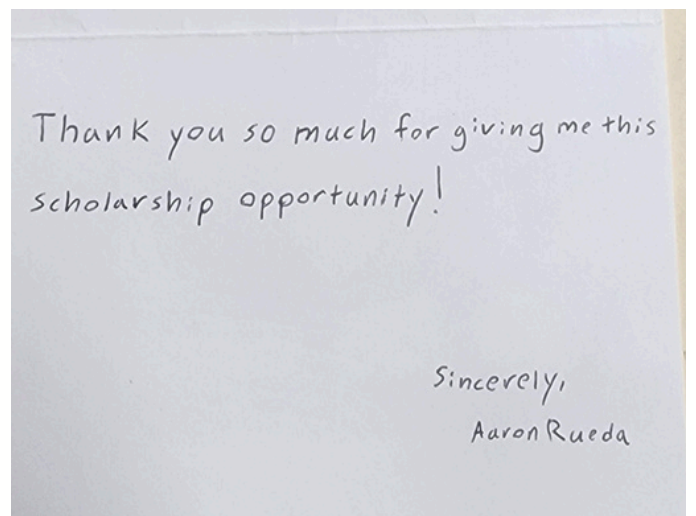 Thank you so much for giving me this
scholarship opportunity!
Sincerely,
Aaron Rueda